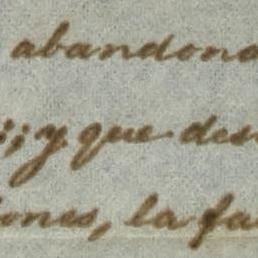 abandona
; y que des
iones, la fa